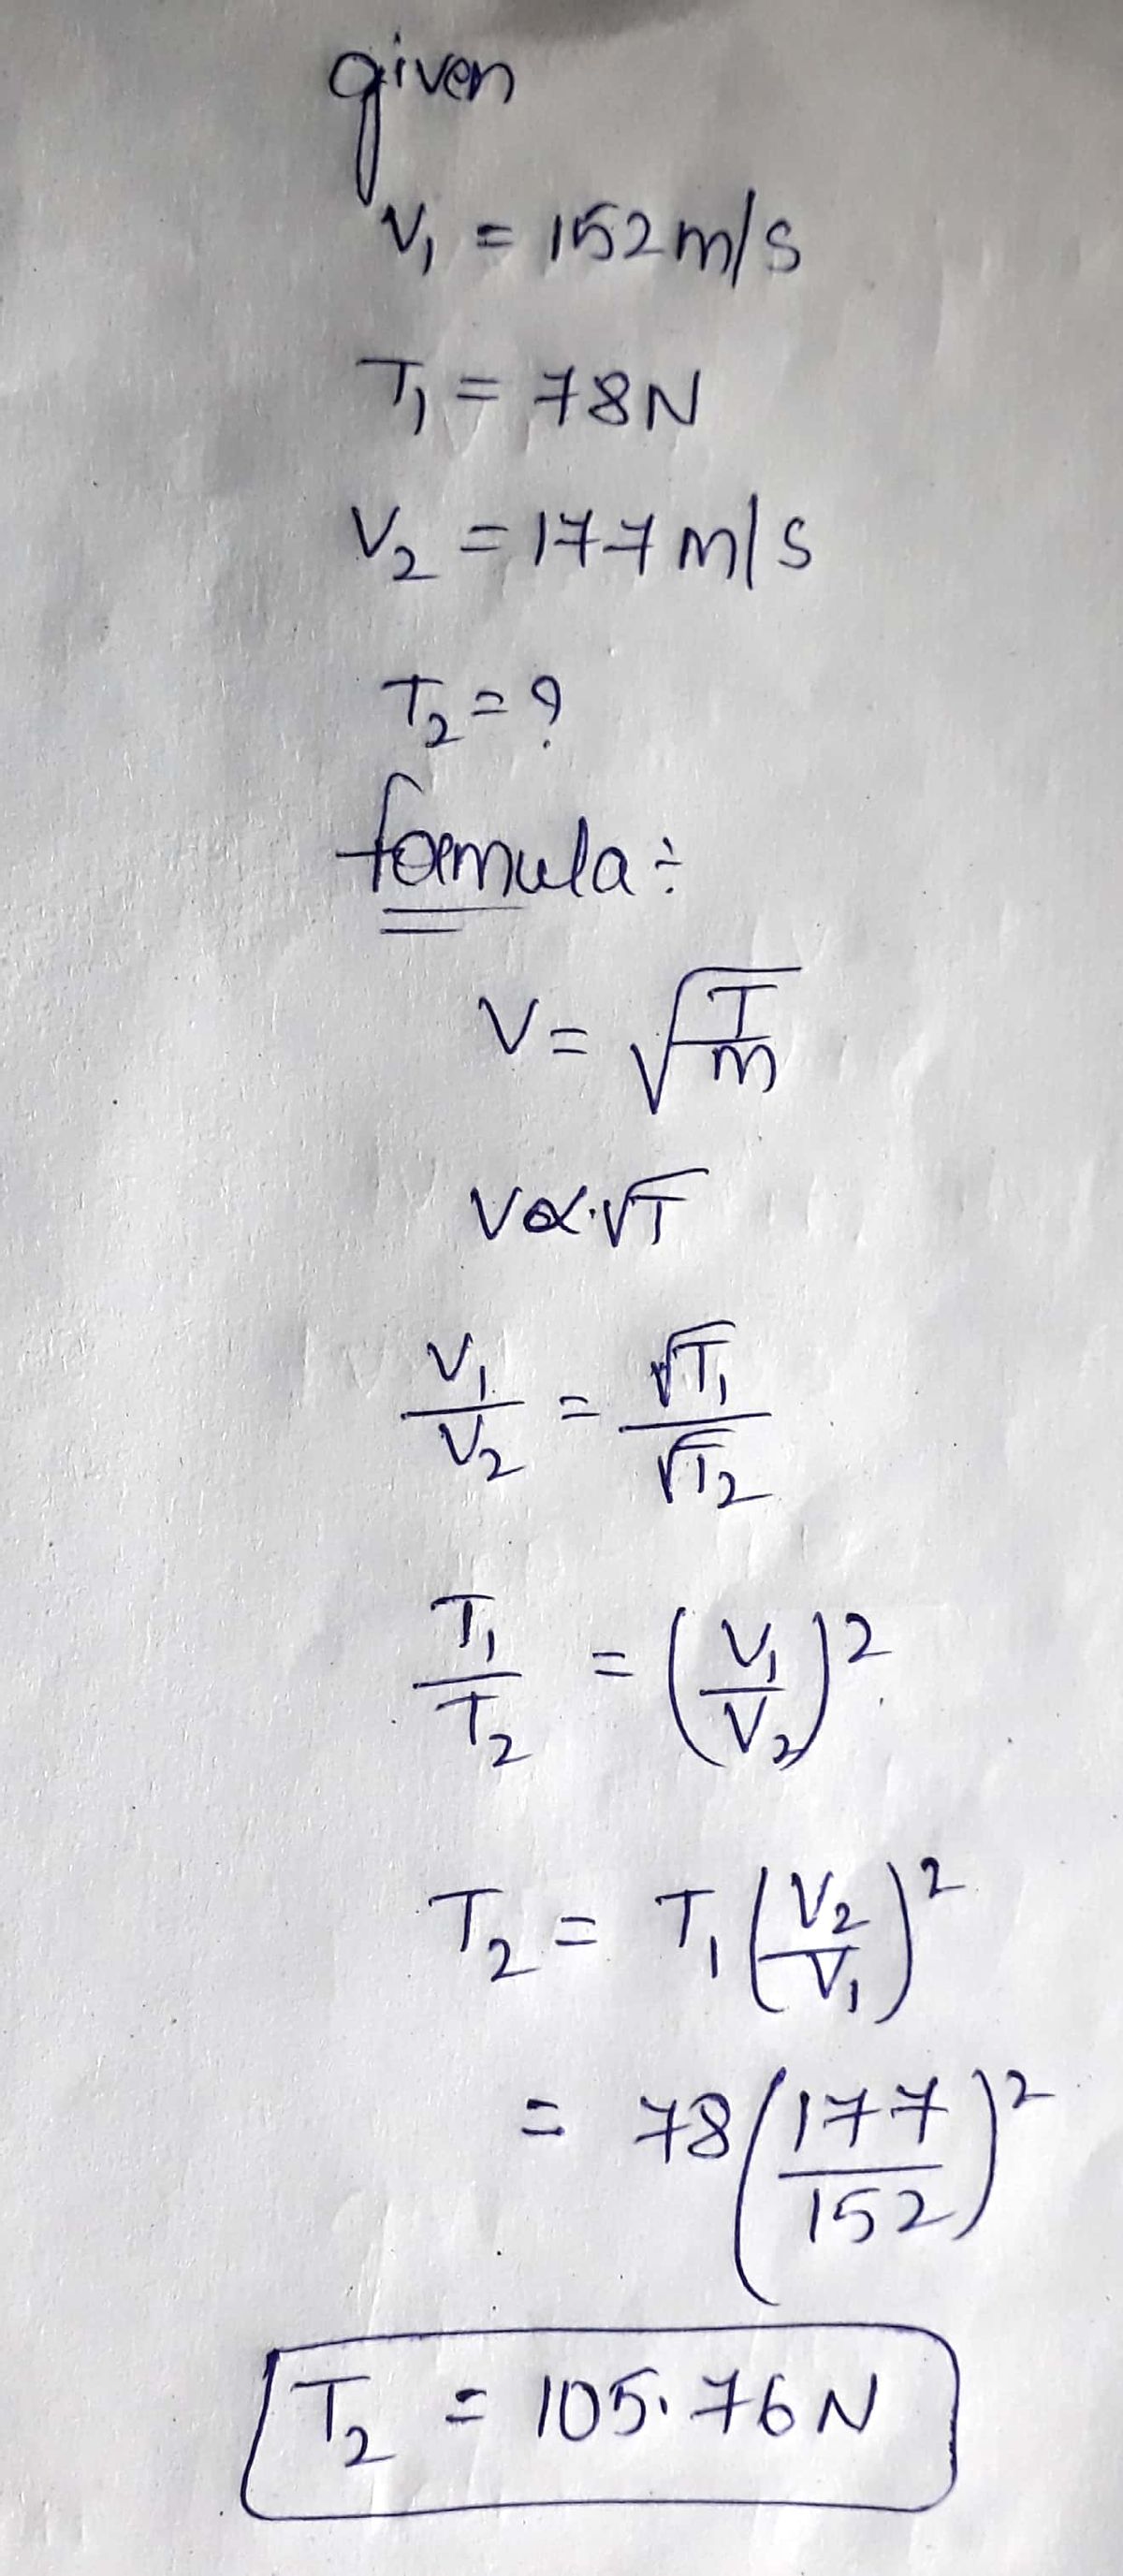 given
V₁ = 152 m/s
T₁ = 78N
V₂ = 177 m/s
T₂ = ?
formula:
V = √(T/m)
V ∝ √T
V₁/V₂ = √T₁/√T₂
T₁/T₂ = (V₁/V₂)²
T₂ = T₁ (V₂/V₁)²
= 78 (177/152)²
T₂ = 105.76 N